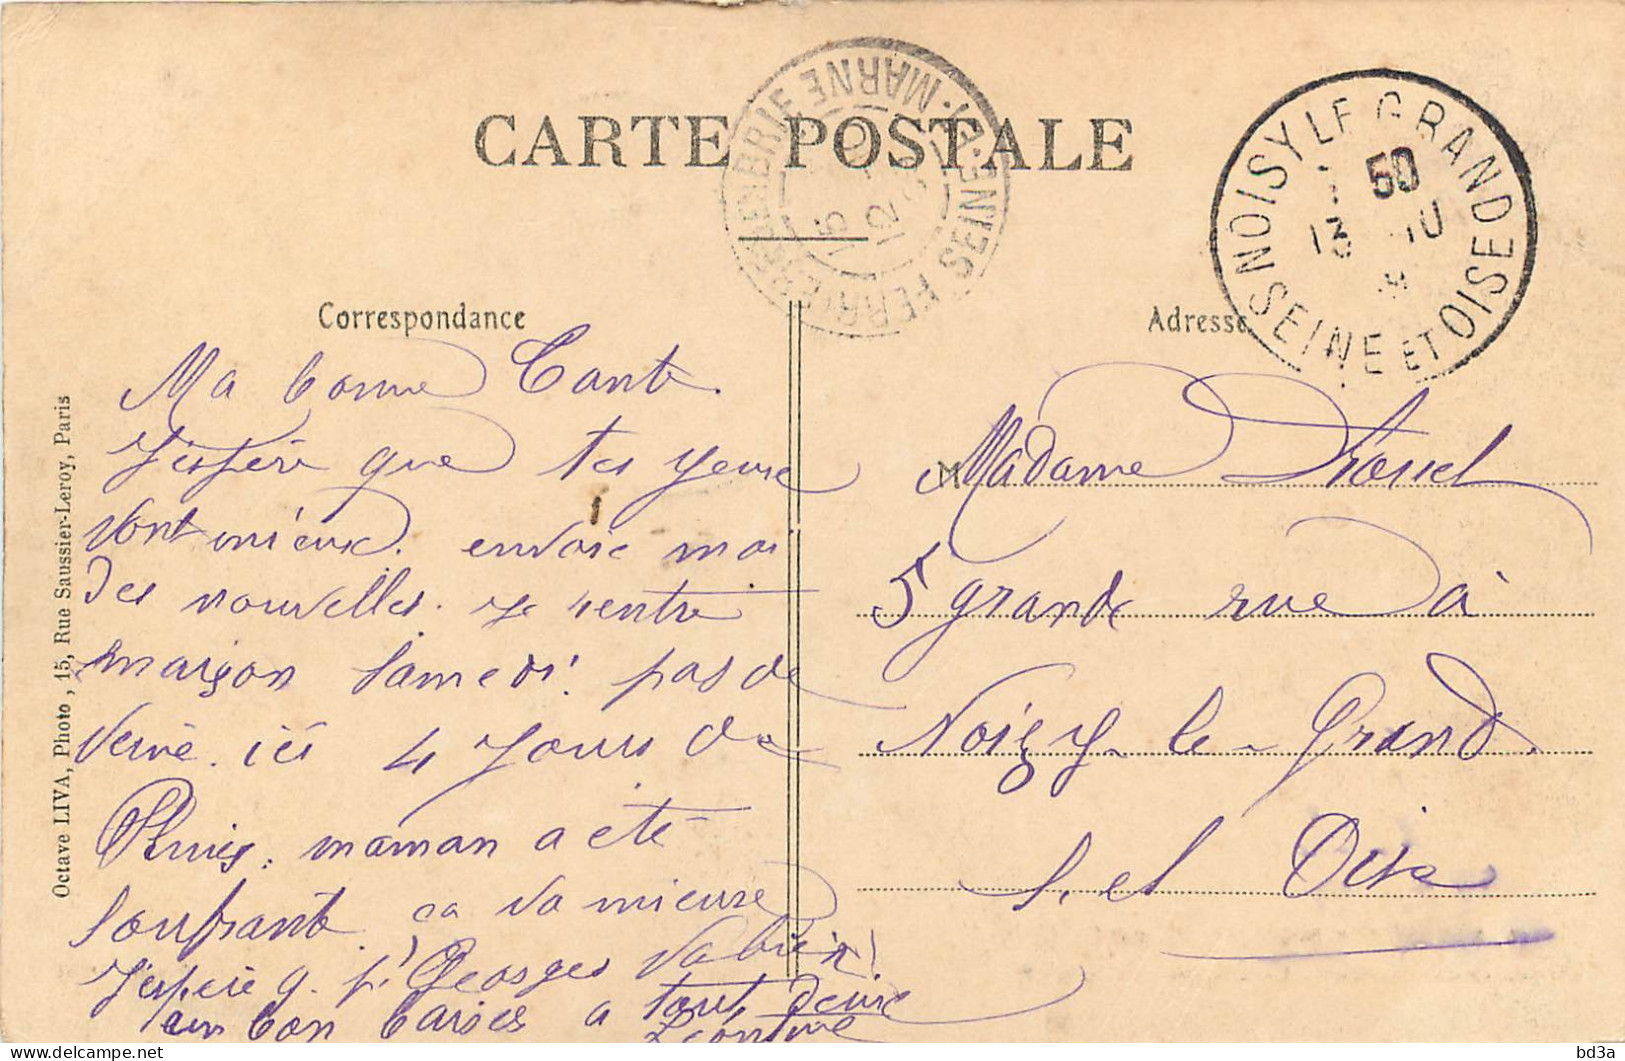 CARTE POSTALE
FERRIERES-EN-BRIE SEINE-&-MARNE
NOISY LE GRAND
50
13
SEINE ET OISE
Correspondance
Adresse
Octave LIVA, Photo, 15, Rue Saussier-Leroy, Paris
Ma bonne Tante.
J'espère que tes yeux
vont mieux. envoie moi
des nouvelles. je rentre
maison samedi. pas de
veine. ici 4 jours de
Pluies. maman a été
soufrante. ça va mieux
J'espère q. p'. Georges va bien!
un bon baiser a tout deux
Léontine
M
Madame
5 grande rue à
Noizy-le-Grand
S. et Oise
bd3a